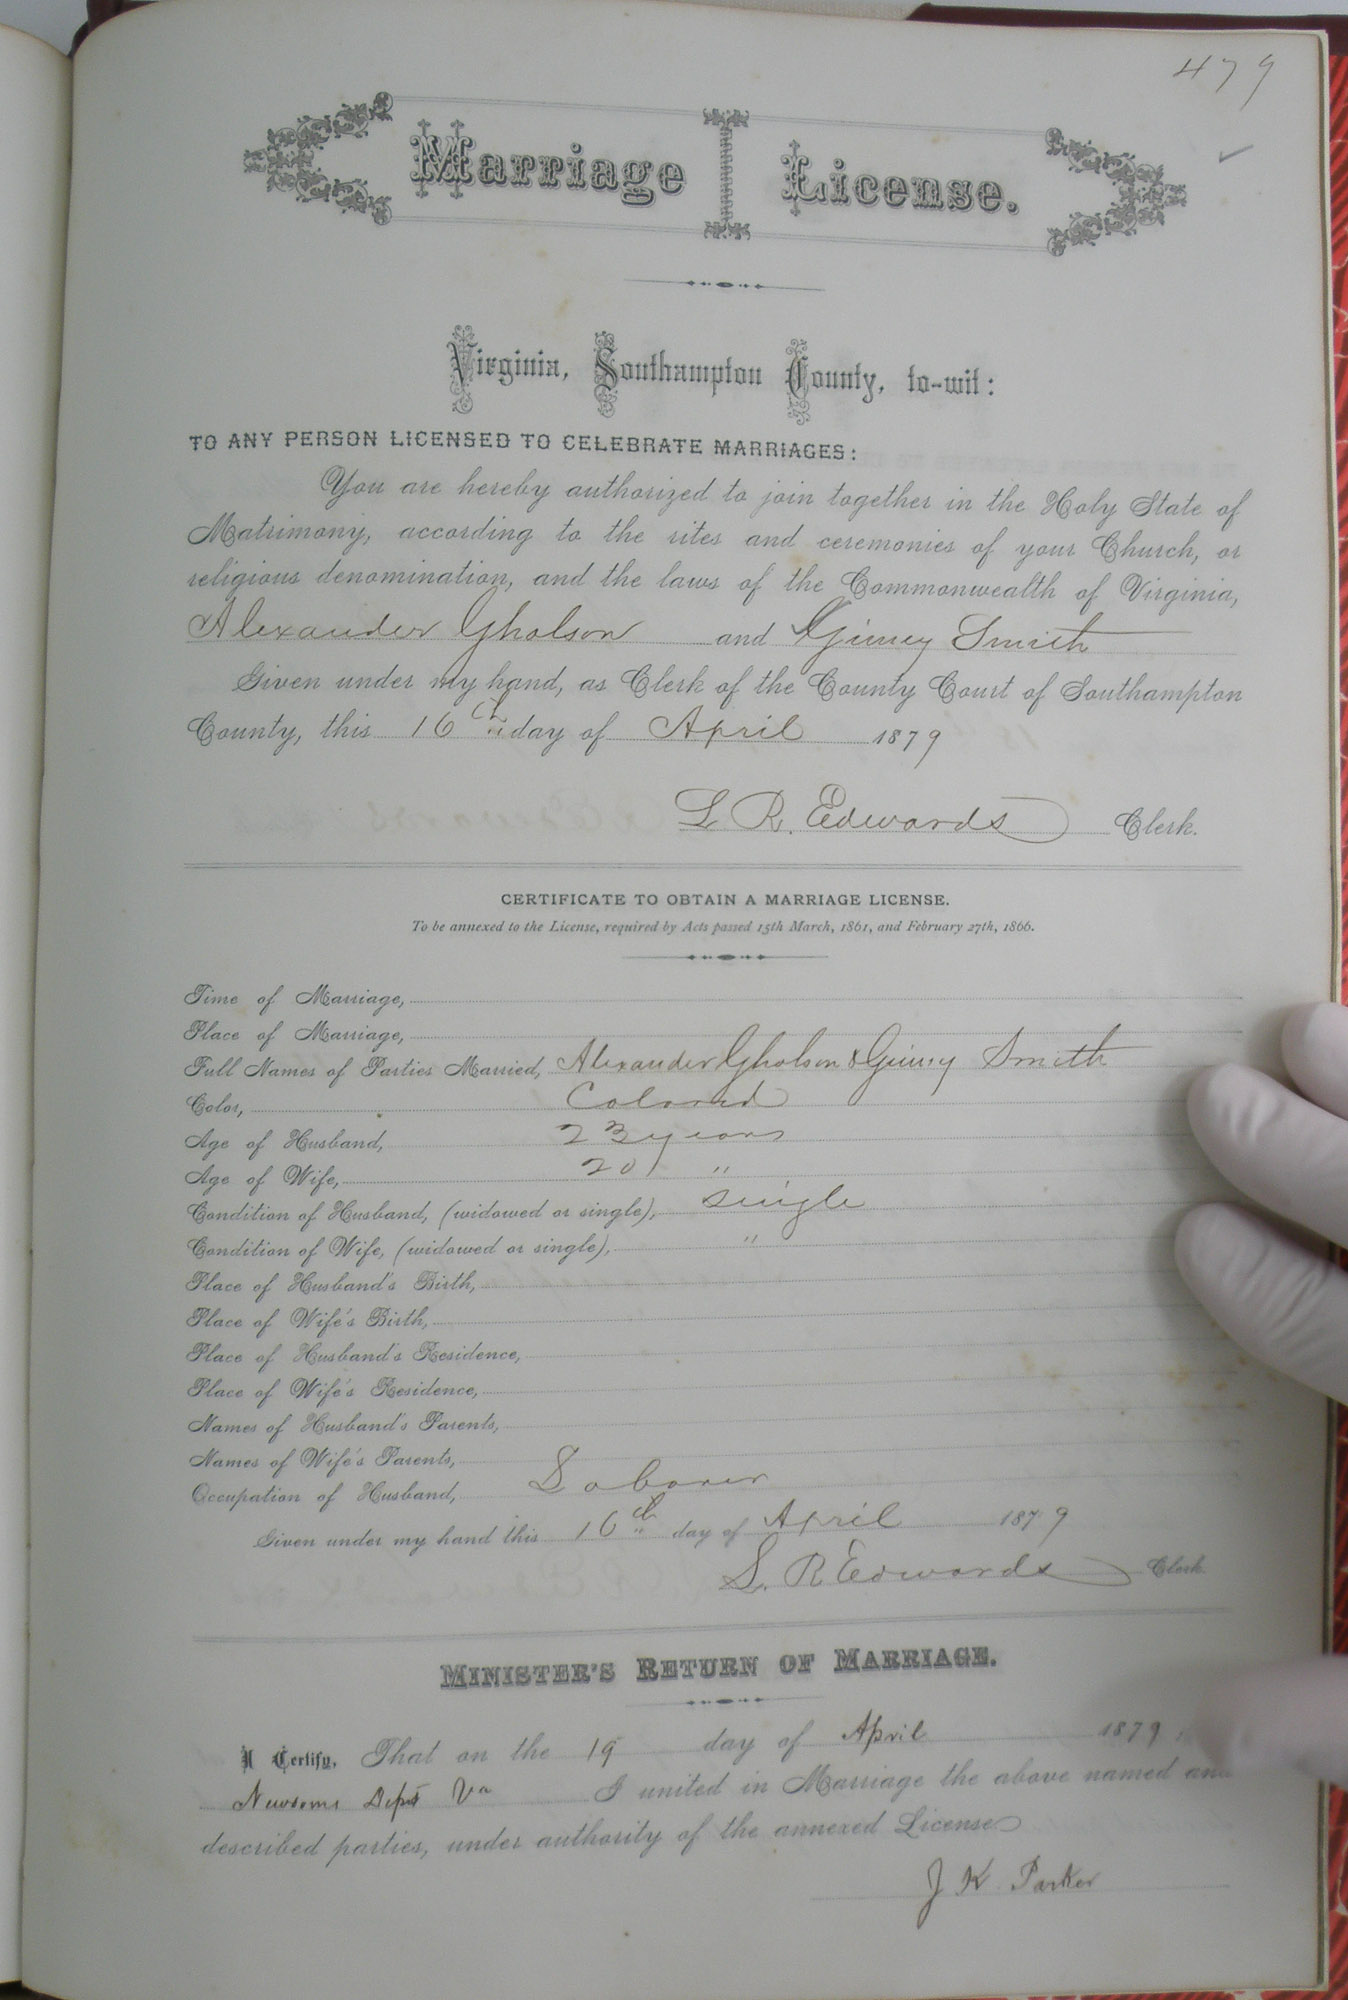 479
Marriage License.
Virginia, Southampton County, to-wit:
TO ANY PERSON LICENSED TO CELEBRATE MARRIAGES:
You are hereby authorized to join together in the Holy State of
Matrimony, according to the rites and ceremonies of your Church, or
religious denomination, and the laws of the Commonwealth of Virginia,
Alexander Gholson and Ginney Smith
Given under my hand, as Clerk of the County Court of Southampton
County, this 16th day of April 1879
L. R. Edwards Clerk.
CERTIFICATE TO OBTAIN A MARRIAGE LICENSE.
To be annexed to the License, required by Acts passed 15th March, 1861, and February 27th, 1866.
Time of Marriage,
Place of Marriage,
Full Names of Parties Married, Alexander Gholson & Ginney Smith
Color, Colored
Age of Husband, 23 years
Age of Wife, 20 "
Condition of Husband, (widowed or single), single
Condition of Wife, (widowed or single), "
Place of Husband's Birth,
Place of Wife's Birth,
Place of Husband's Residence,
Place of Wife's Residence,
Names of Husband's Parents,
Names of Wife's Parents,
Occupation of Husband, Laborer
Given under my hand this 16th day of April 1879
L. R Edwards Clerk.
MINISTER'S RETURN OF MARRIAGE.
I Certify, That on the 19 day of April 1879
Newsoms Depot Va I united in Marriage the above named and
described parties, under authority of the annexed License
J K Parker